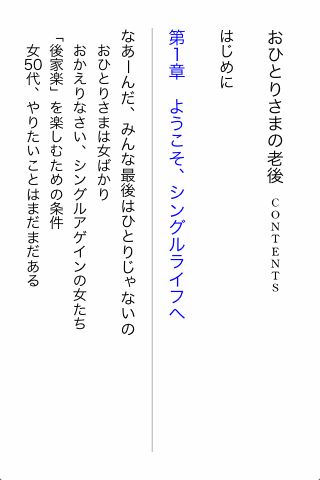 おひとりさまの老後 CONTENTS
はじめに
第1章　ようこそ、シングルライフへ
なあーんだ、みんな最後はひとりじゃないの
おひとりさまは女ばかり
おかえりなさい、シングルアゲインの女たち
「後家楽」を楽しむための条件
女50代、やりたいことはまだまだある